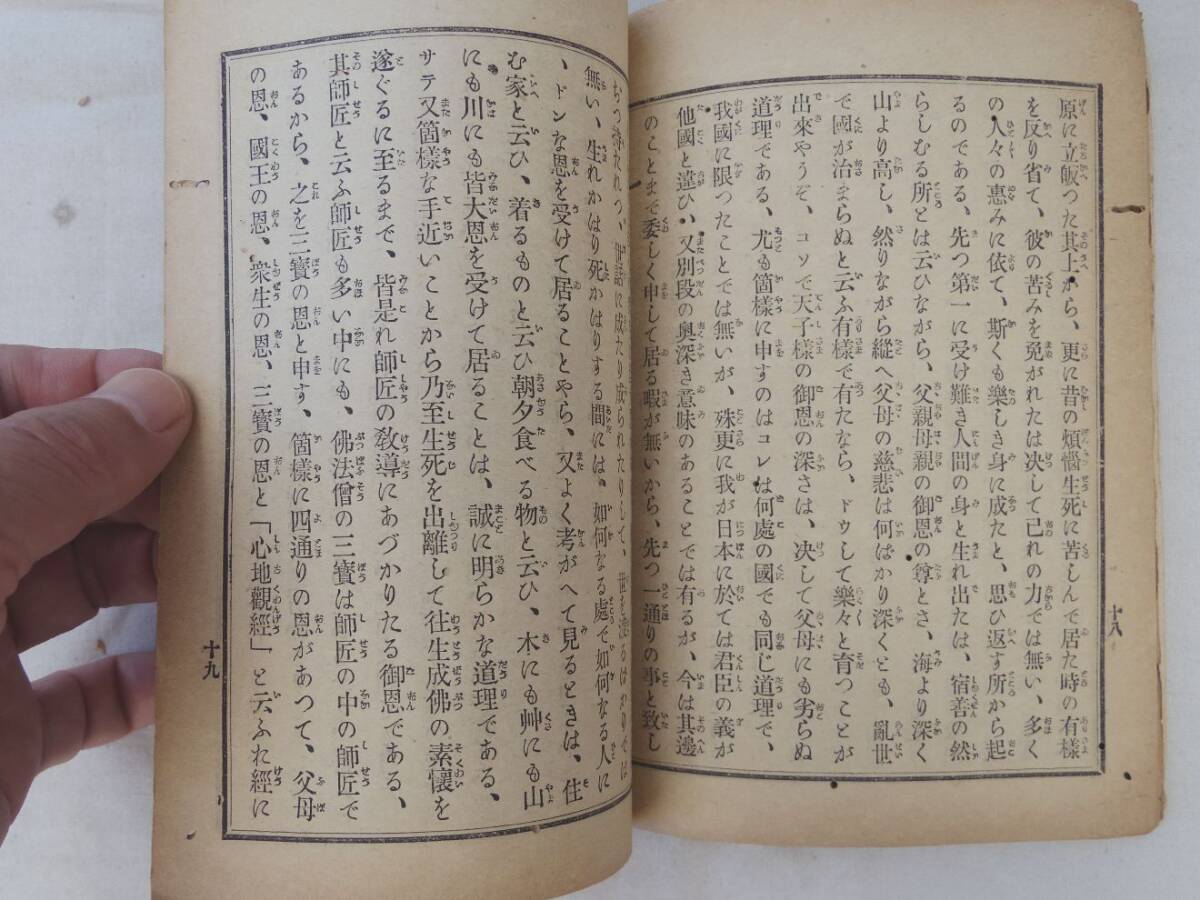 原に立皈つた其上から、更に昔の煩惱生死に苦しんで居た時の有樣
を反り省て、彼の苦みを免がれたは决して己れの力では無い、多く
の人々の惠みに依て、斯くも樂しき身に成たと、思ひ返す所から起
るのである、先つ第一に受け難き人間の身と生れ出たは、宿善の然
らしむる所とは云ひながら、父親母親の御恩の尊とさ、海より深く
山より高し、然りながら縱へ父母の慈悲は何ばかり深くとも、亂世
で國が治まらぬと云ふ有樣で有たなら、ドウして樂々と育つことが
出來やうぞ、コソで天子樣の御恩の深さは、决して父母にも劣らぬ
道理である、尤も箇樣に申すのはコレは何處の國でも同じ道理で、
我國に限つたことでは無いが、殊更に我が日本に於ては君臣の義が
他國と違ひ、又別段の奧深き意味のあることでは有るが、今は其邊
のことまで委しく申して居る暇が無いから、先つ一通りの事と致し
十八
世話に成たり成られたりして、
無い、生れかはり死かはりする間には、如何なる處で如何なる人に
、ドンな恩を受けて居ることやら、又よく考がへて見るときは、住
む家と云ひ、着るものと云ひ朝夕食べる物と云ひ、木にも艸にも山
にも川にも皆大恩を受けて居ることは、誠に明らかな道理である、
サテ又箇樣な手近いことから乃至生死を出離して往生成佛の素懷を
遂ぐるに至るまで、皆是れ師匠の敎導にあづかりたる御恩である、
其師匠と云ふ師匠も多い中にも、佛法僧の三寶は師匠の中の師匠で
あるから、之を三寶の恩と申す、箇樣に四通りの恩があつて、父母
の恩、國王の恩、衆生の恩、三寶の恩と「心地觀經」と云ふれ經に
十九